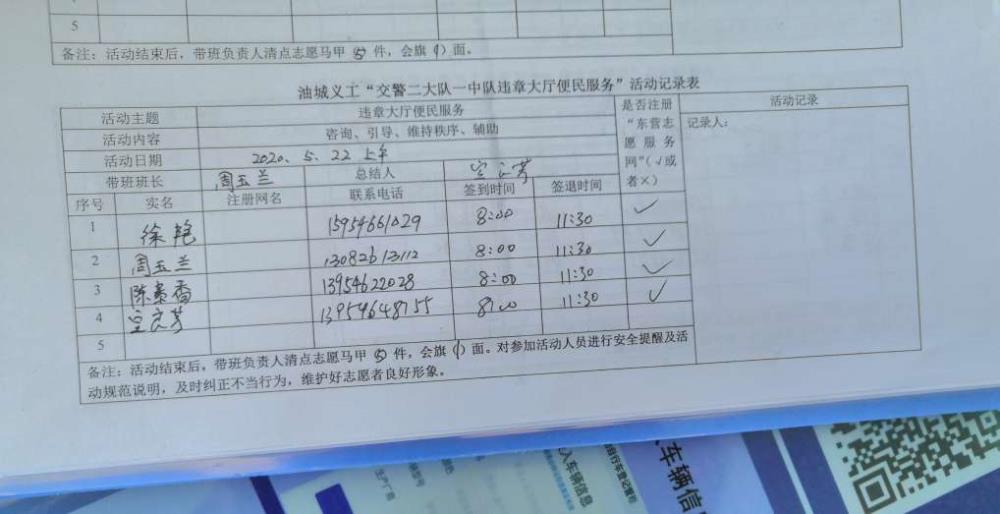 5
备注：活动结束后，带班负责人清点志愿马甲（5）件，会旗（1）面。
油城义工“交警二大队一中队违章大厅便民服务”活动记录表
活动主题 违章大厅便民服务 是否注册“东营志愿服务网”（√或者×） 活动记录
活动内容 咨询、引导、维持秩序、辅助 记录人：
活动日期 2020、5、22 上午
带班班长 周玉兰 总结人
序号 实名 注册网名 联系电话 签到时间 签退时间
1 徐艳 15954661029 8:00 11:30 ✓
2 周玉兰 13082613112 8:00 11:30 ✓
3 陈贵香 13954622028 8:00 11:30 ✓
4 13954648155 8:00 11:30 ✓
5
备注：活动结束后，带班负责人清点志愿马甲（5）件，会旗（1）面。对参加活动人员进行安全提醒及活
动规范说明，及时纠正不当行为，维护好志愿者良好形象。
入车辆信息
车辆信
生产厂商